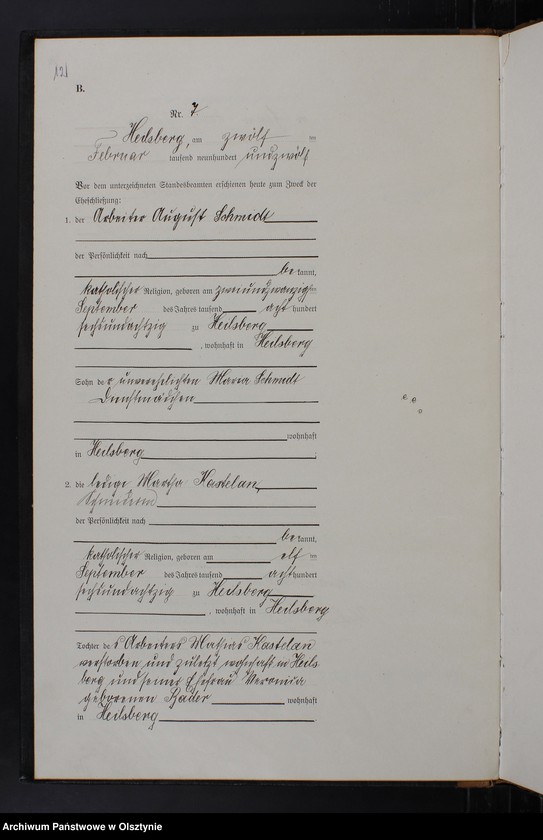 121
B.
Nr. 7.
Heilsberg, am zwölf ten
Februar tausend neunhundert und zwölf
Vor dem unterzeichneten Standesbeamten erschienen heute zum Zweck der
Eheschließung:
1. der Arbeiter August Schmidt
der Persönlichkeit nach
be kannt,
katholischer Religion, geboren am zweiundzwanzigsten
September des Jahres tausend acht hundert
sechsundachtzig zu Heilsberg
, wohnhaft in Heilsberg
Sohn der unverehelichten Maria Schmidt
Dienstmädchen
wohnhaft
in Heilsberg
2. die ledige Martha Kastelan,
Schneiderin
der Persönlichkeit nach
be kannt,
katholischer Religion, geboren am elf ten
September des Jahres tausend acht hundert
sechsundachtzig zu Heilsberg
, wohnhaft in Heilsberg
Tochter des Arbeiters Mathias Kastelan
verstorben und zuletzt wohnhaft in Heils
berg und seiner Ehefrau Veronica
geborenen Bader wohnhaft
in Heilsberg
Archiwum Państwowe w Olsztynie